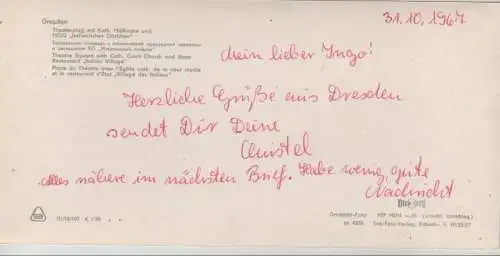 31.10.1967
Dresden
Theaterplatz mit Kath. Hofkirche und
HOG „Italienisches Dörfchen“
Theatre Square with Cath. Court Church and State
Restaurant „Italian Village“
Place du Théatre avec l'Église cath. de la cour royale
et le restaurant d'État „Village des Italiens“
Mein lieber Ingo!
Herzliche Grüße aus Dresden
sendet Dir Deine
Christel
Alles nähere im nächsten Brief. Habe wenig gute
Nachricht